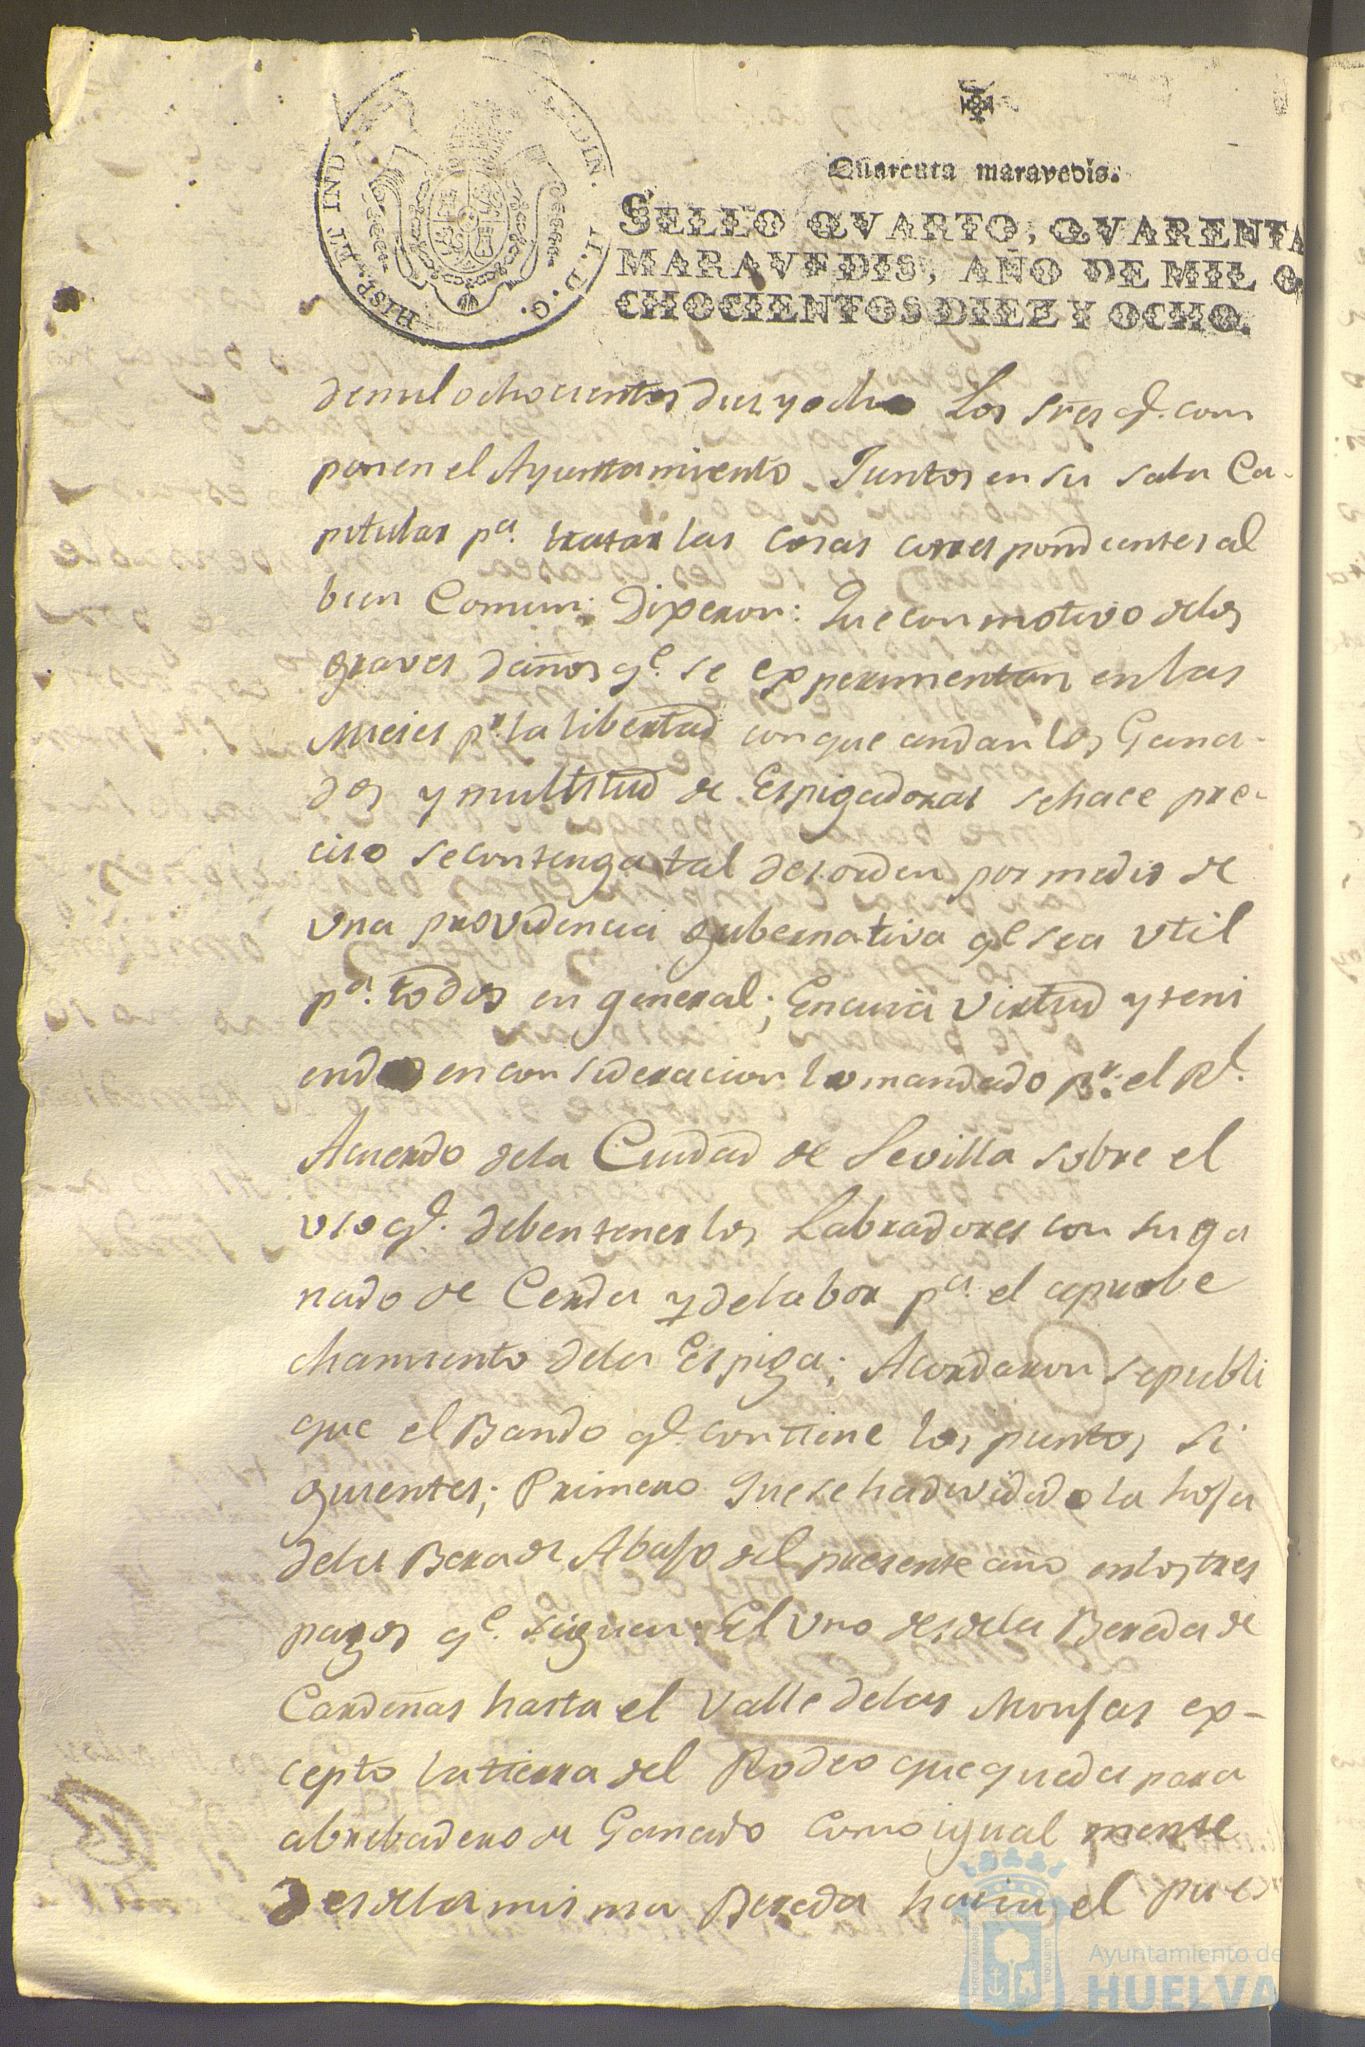 Quarenta maravedis.
SELLO QVARTO, QVARENTA
MARAVEDIS, AÑO DE MIL O
CHOCIENTOS DIEZ Y OCHO.
HISP. ET IND
VII. D. G.
de mil ochocientos diez y ocho Los Sres q.e com
ponen el Ayuntamiento Juntos en su sala Ca-
pitular pa. tratar las cosas correspondientes al
bien Comun; Dixeron: Que con motivo de los
graves daños qe. se experimentan en las
Mieses pr. la libertad con que andan los Gana-
dos y multitud de Espigadoras se hace pre-
ciso se contenga tal desorden por medio de
una providencia gubernativa qe sea util
pa. todos en general; En cuia virtud y teni
endo en consideracion lo mandado pr. el Rl.
Acuerdo de la Ciudad de Sevilla sobre el
uso qe. deben tener los Labradores con su ga
nado de Cerda y de labor pa. el aprobe
chamiento de la Espiga; Acordaron se publi
que el Bando qe. contiene los puntos si
guientes; Primero Que se ha dividido la hoja
de la Bera de Abajo del presente año en los tres
pagos qe. siguen: El uno desde la Bereda de
Cardeñas hasta el Valle de las Monjas ex-
cepto la tierra del Rodeo que queda para
abrebadero de Ganado como igual mente
desde la misma Bereda hacia el pues
Ayuntamiento de
HUELVA